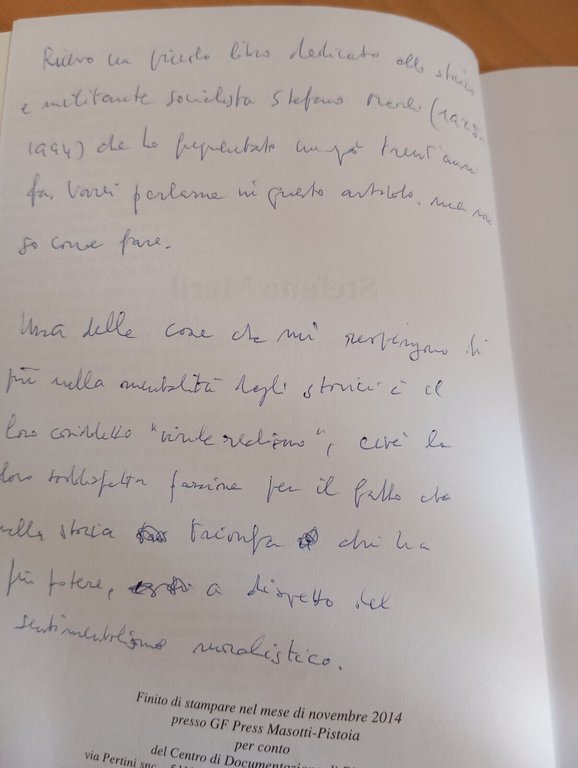 Ricevo un piccolo libro dedicato allo storico
e militante socialista Stefano Merli (1925-
1994) che ho frequentato un pò trent'anni
fa. Vorrei parlarne in questo articolo, ma non
so come fare.
Una delle cose che mi respingono di
più nella mentalità degli storici è il
loro cosiddetto "virile realismo", cioè la
loro soddisfatta passione per il fatto che
nella storia trionfa chi ha
più potere, a dispetto del
sentimentalismo moralistico.
Finito di stampare nel mese di novembre 2014
presso GF Press Masotti-Pistoia
per conto
del Centro di Documentazione di
via Pertini snc